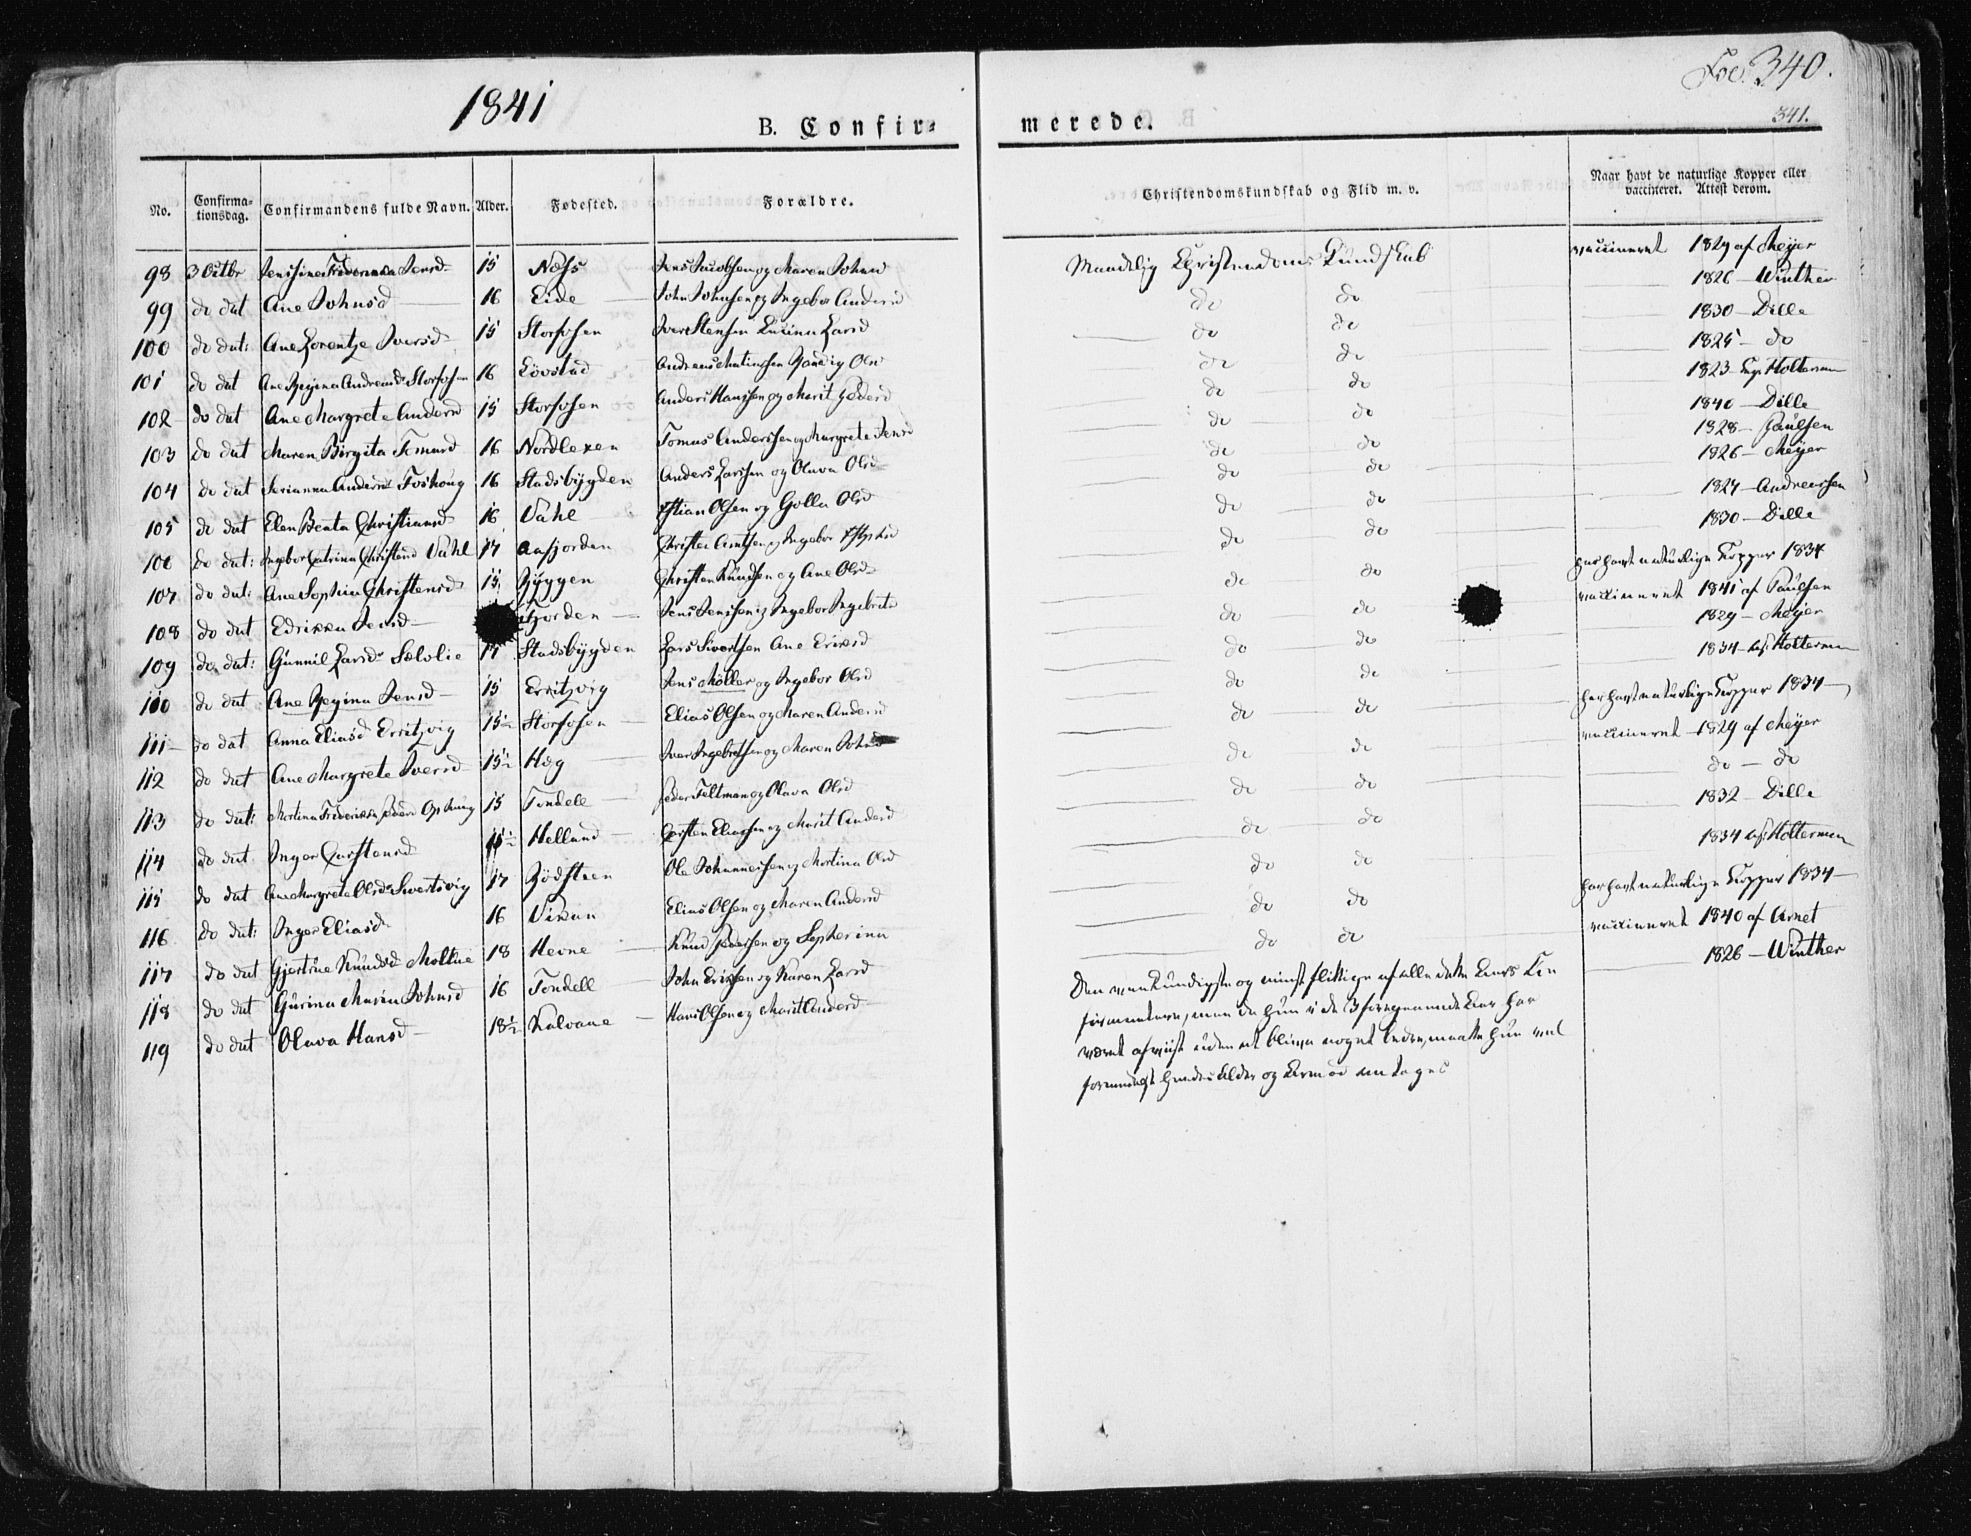 1841
Fol. 340.
341.
B. Confir=
merede.
No.
Confirma=
tionsdag.
Confirmandens fulde Navn.
Alder.
Fødested.
Forældre.
Christendomskundskab og Flid m. v.
Naar havt de naturlige Kopper eller
vaccineret. Attest derom.
98 3 Octbr Jensd 15 Næss Jens Jacobsen og Maren Johnsd Maadelig Christendoms Kundskab vaccineret 1829 af Meÿer
99 do dat Ane Johnsd 16 Eide John Johnsen og Ingebor Andersd do do 1826 – Winther
100 do dat: Ane Lorentze Iversd 15 Storfosen Iver Stensen Larsd do do 1830 – Dille
101 do dat Ane Regina Storfosen 16 Løvstad Olsd do do 1825 – do
102 do dat Ane Margrete Andersd 15 Storfosen Anders Hansen og Marit Pedersd do do 1823 Holterman
103 do dat Maren Birgita Tomasd 16 Nordlexen Tomas Anderssen og Margrete Jensd do do 1840 – Dille
104 do dat Andersd 16 Stadsbÿgden Anders Larssen og Olava Olsd do do 1828 – Paülsen
105 do dat Elen Beata Christiansd 16 Vahl Olsen og Golla Olsd do do 1826 – Meÿer
106 do dat: Ingebor Catrina Vahl 17 Aafjorden og Ingebor do do 1827 – Andreassen
107 do dat: Ane Sophia Christensd 15 Rÿggen Christen Knüdsen og Ane Olsd do do 1830 – Dille
108 do dat Edrikka Jensd fjorden Jens Jenssen og Ingebor Ingebretsd do do har havt naturlige Kopper 1834
109 do dat: Günnil Larsd Sælolie 17 Stadsbÿgden Lars Sivertsen Ane Eriksd do do vaccineret 1841 af Paülsen
110 do dat Ane Regina Jensd 15 Erritzvig Jens Möller og Ingebor Olsd do do 1829 – Meÿer
111 do dat Anna Eliasd Erritzvig 15½ Storfosen Elias Olsen og Maren Andersd do do 1834 Holterman
112 do dat Ane Margrete Iversd 15½ Hæg Iver Ingebretsen og Maren Johnsd do do har havt naturlige Kopper 1834
113 do dat: Martina Frederikke 15 Tondell Peder Feltman og Olava Olsd do do vaccineret 1829 af Meÿer
114 do dat Inger Carstensd 15½ Helland Carsten Eliassen og Marit Andersd do do do – do
115 do dat Ane Margrete Olsd Sivertsvig 17 Rödsteen Ole Johannessen og Martina Olsd do do 1832 – Dille
116 do dat: Inger Eliasd 16 Vikan Elias Olsen og Maren Andersd do do 1834 Holterman
117 do dat Gjertrue Knüdsd Moltue 18 Hevne Knüd Pederssen og do do har havt naturlige Kopper 1834
118 do dat Gürina Johnsd 16 Tondell John Erikssen og Karen Larsd do do vaccineret 1840 af Arnet
119 do dat Olava Hansd 18½ Kalvaae Hans Olsen og Marit Andersd 1826 – Winther
Den og mindst flittige af alle dette Aars Con
firmantere, men da hun i de 3 foregaaende Aar har
været afviist uden at blive noget bedre, maatte hun ved
hendes Alder og antages